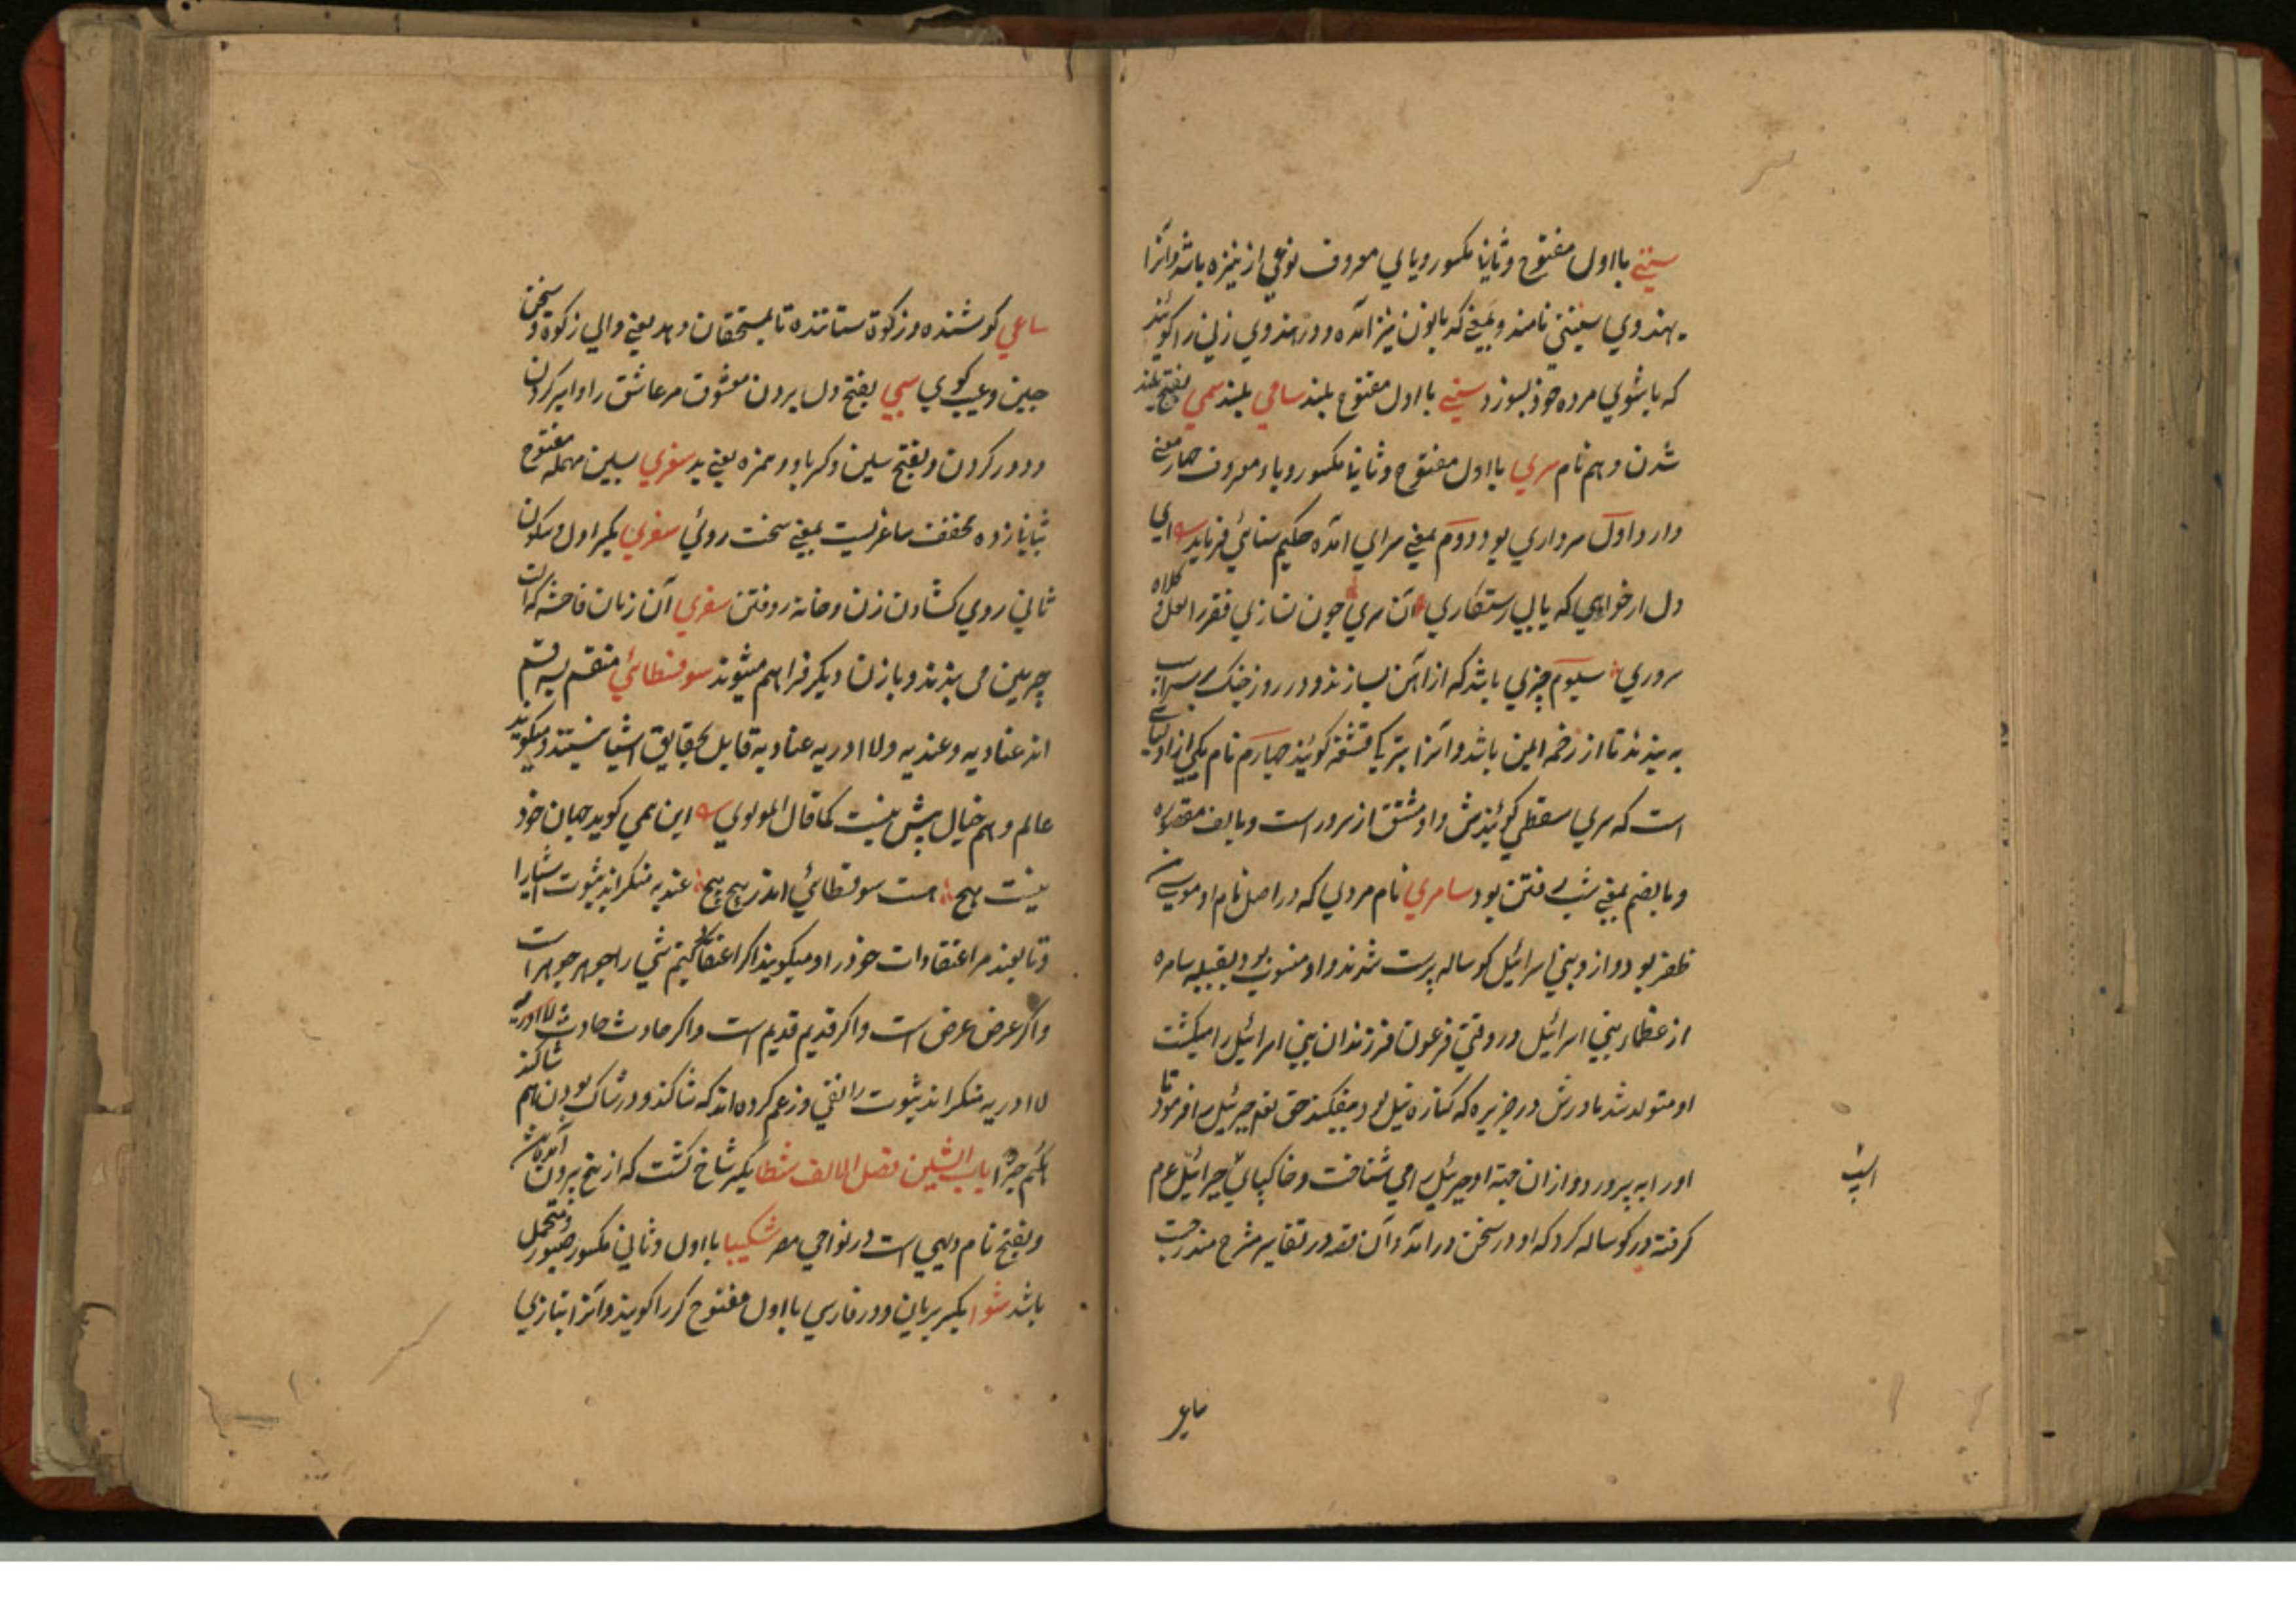 سینی بااول مفتوح و ثانیا مکسور و یای معروف نوعی از نیزه باشد و آنرا
بهندوی سینتی نامند و بمعنی که بانون نیز آمده و در هندوی زنی را گویند
که باشوی مرده خود بسوزد سینی بااول مفتوح بلند سامی بلند سمی بفتح بلند
شدن و هم نام سری بااول مفتوح و ثانیا مکسور و یاء معروف چهار معنی
دارد اول سرداری بود دوم بمعنی سرای آمده حکیم سنائی فرماید ای
دل ار خواهی که یابی رستکاری آن سری چون نسازی فقر را نعل و کلاه
سروری سیوم چیزی باشد که از آهن بسازند و در روز جنک بر سر اسب
به بندند تا از زخم ایمن باشد و آنرا بترکی قشقه کویند چهارم نام یکی از اولیای
است که سری سقطی کویندش و او مشتق از سرور است و بالف مقصوره
و بالضم بمعنی شب رفتن بود سامری نام مردی که در اصل نام او موسی بن
ظفر بود و ازو بنی اسرائیل کوساله پرست شدند و او منسوب بود بقبیله سامره
از عظماء بنی اسرائیل در وقتی فرعون فرزندان بنی اسرائیل را میکشت
او متولد شد مادرش در جزیره که کناره نیل بود بیفکند حق تعم جبرئیل را فرمود تا
اورا به پرورد و ازان جهة او جبرئیل را می شناخت و خاکپای جبرائیل عم
کرفته در کوساله کرد که او در سخن درآمد و آن قصه در تفاسیر مشرح مندرجست
ساعی
ساعی کوشنده و زکوة ستاننده تا بمستحقان دهد یعنی والی زکوة و سخن
چین و عیب کوی سبی بفتح دل بردن معشوق مر عاشق را و اسیر کردن
و دور کردن و بفتح سین و کسر با و همزه یعنی بد سغری بسین مهمله مفتوح
بثانیا زده مخفف ساغریست بمعنی سخت روئی سفری بکسر اول و سکون
ثانی روی کشادن زن و خانه روفتن سعری آن زنان فاحشه که آلت
چرمین می بندند و بازن دیکر فراهم میشوند سوفسطائی منقسم بسه قسم
اند عنادیه و عندیه و لاادریه عنادیه قایل بحقایق اشیا نیستند و میکویند
عالم وهم خیال بیش نیست کما قال المولوی این همی کوید جهان خود
نیست هیچ هست سوفسطائی اندر پیچ پیچ عندیه منکراند بثبوت اشیا را
و تابعند مر اعتقادات خود را و میکویند اکر اعتقاد کنیم شی را جوهر جوهر است
و اکر عرض عرض است و اکر قدیم قدیم است و اکر حادث حادث لاادریه
لاادریه منکراند ثبوت را نفی و زعم کرده اند که شاکند و در شاک بودن هم شاکند
باب الشین فصل الالف شطا بکسر شاخ کشت که از بیخ برون آمده باشد
و بفتح نام دیهی است در نواحی مصر شکیبا بااول و ثانی مکسور صبور و متحمل
باشد شوا بکسر بریان و در فارسی بااول مفتوح کر را کویند و آنرا بتازی